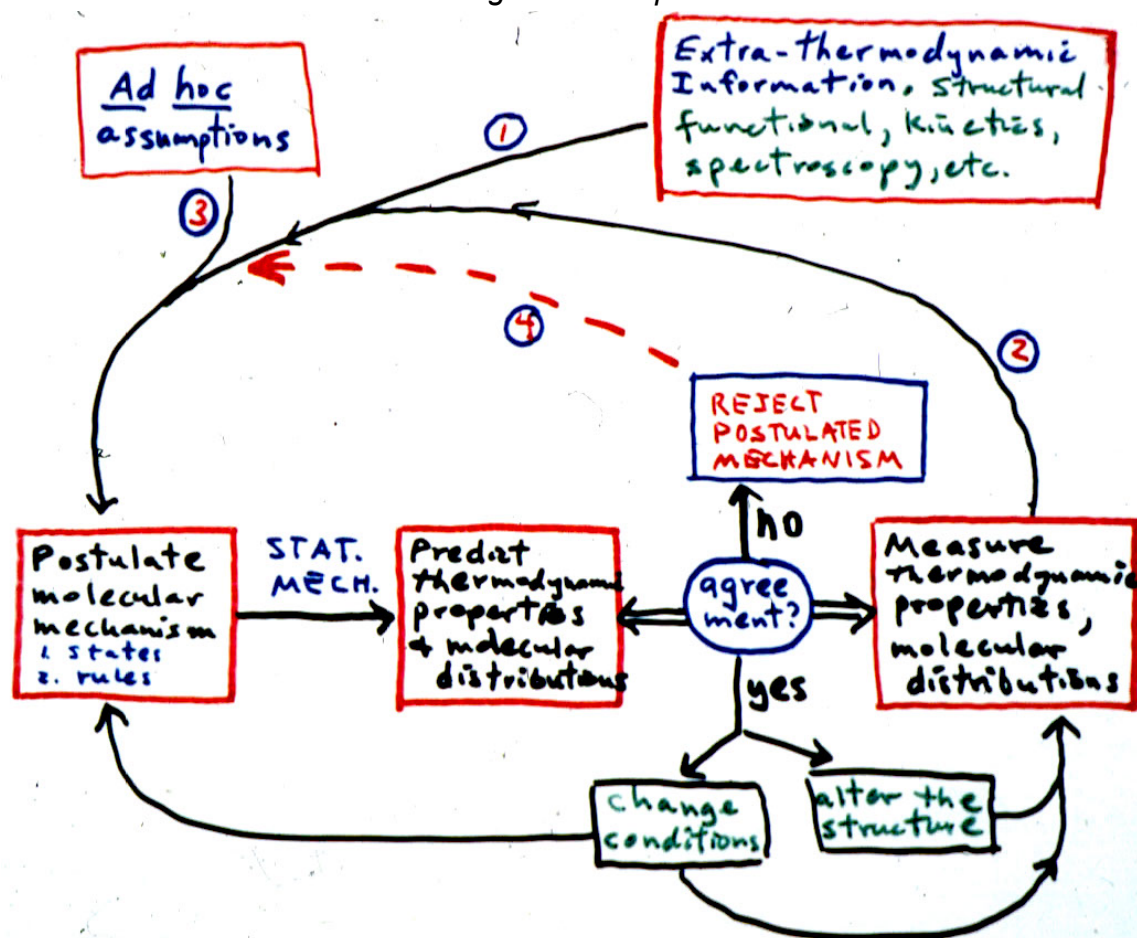 Ad hoc
assumptions
Extra-thermodynamic
Information. Structural
functional, kinetics,
spectroscopy, etc.
1
3
4
2
REJECT
POSTULATED
MECHANISM
no
Postulate
molecular
mechanism
1. states
2. rules
STAT.
MECH.
Predict
thermodynamic
properties
+ molecular
distributions
agree
ment?
Measure
thermodynamic
properties,
molecular
distributions
yes
change
conditions
alter the
structure